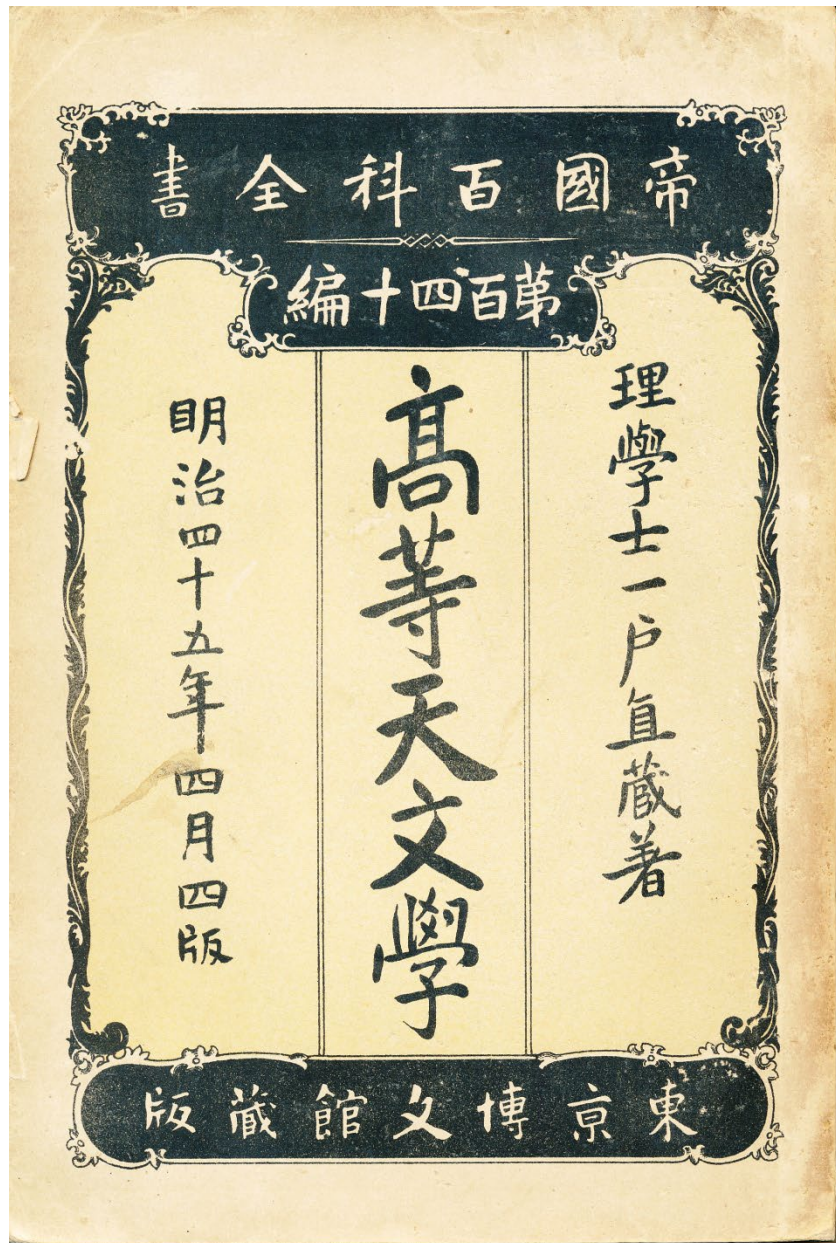 帝國百科全書
第百四十編
理學士一戸直蔵著
高等天文學
明治四十五年四月四版
東京博文館蔵版